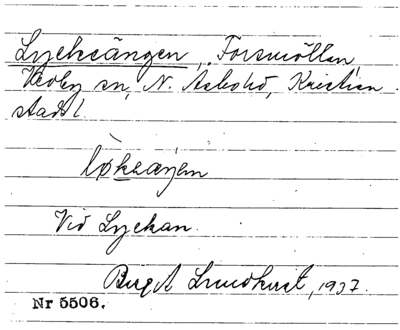 Lyckeängen, Forsmöllan,
Verby sn, N. Åsbohd, Kristian-
stads l.
Vid Lyckan.
Birgit Lundkvist, 1937.
Nr 5506.